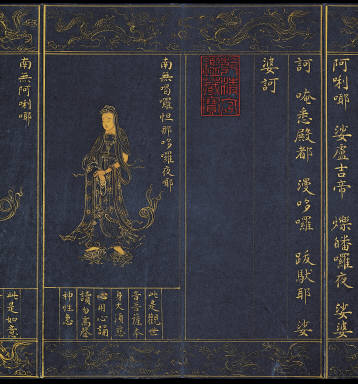 阿唎哪 婆盧吉帝 爍皤囉夜 娑婆
訶 唵悉殿都 漫哆囉 跋馱耶 娑
婆訶
南無喝囉怛那哆囉夜耶
此是觀世
音菩薩本
身大須慈
悲用心誦
讀勿高聲
神性急
南無阿唎哪
此是如意